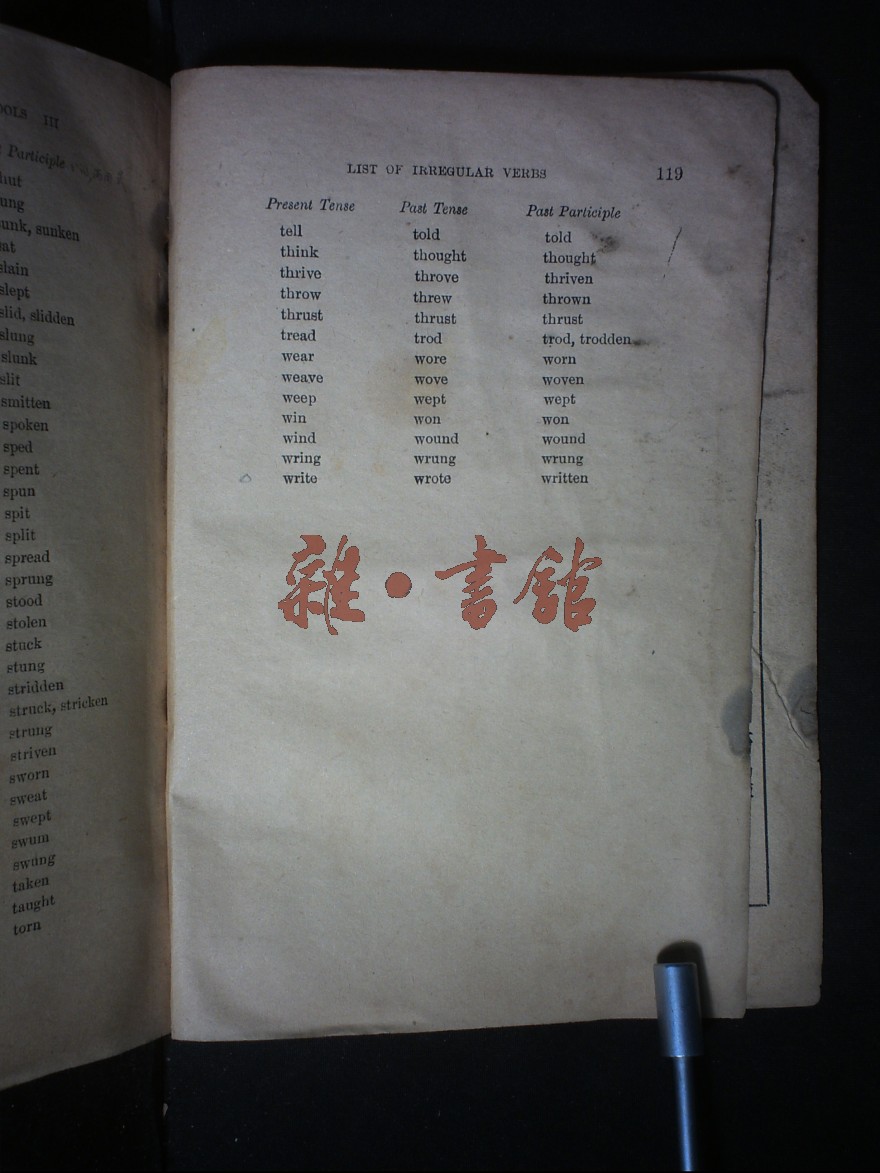 III
Participle
sunken
slept
slid, slidden
slung
slunk
slit
smitten
spoken
sped
spent
spun
spit
split
spread
sprung
stood
stolen
stuck
stung
stridden
struck, stricken
strung
striven
sworn
sweat
swept
swum
swung
taken
taught
torn
LIST OF IRREGULAR VERBS 119
Present Tense Past Tense Past Participle
tell told told
think thought thought
thrive throve thriven
throw threw thrown
thrust thrust thrust
tread trod trod, trodden
wear wore worn
weave wove woven
weep wept wept
win won won
wind wound wound
wring wrung wrung
write wrote written
雜·書館